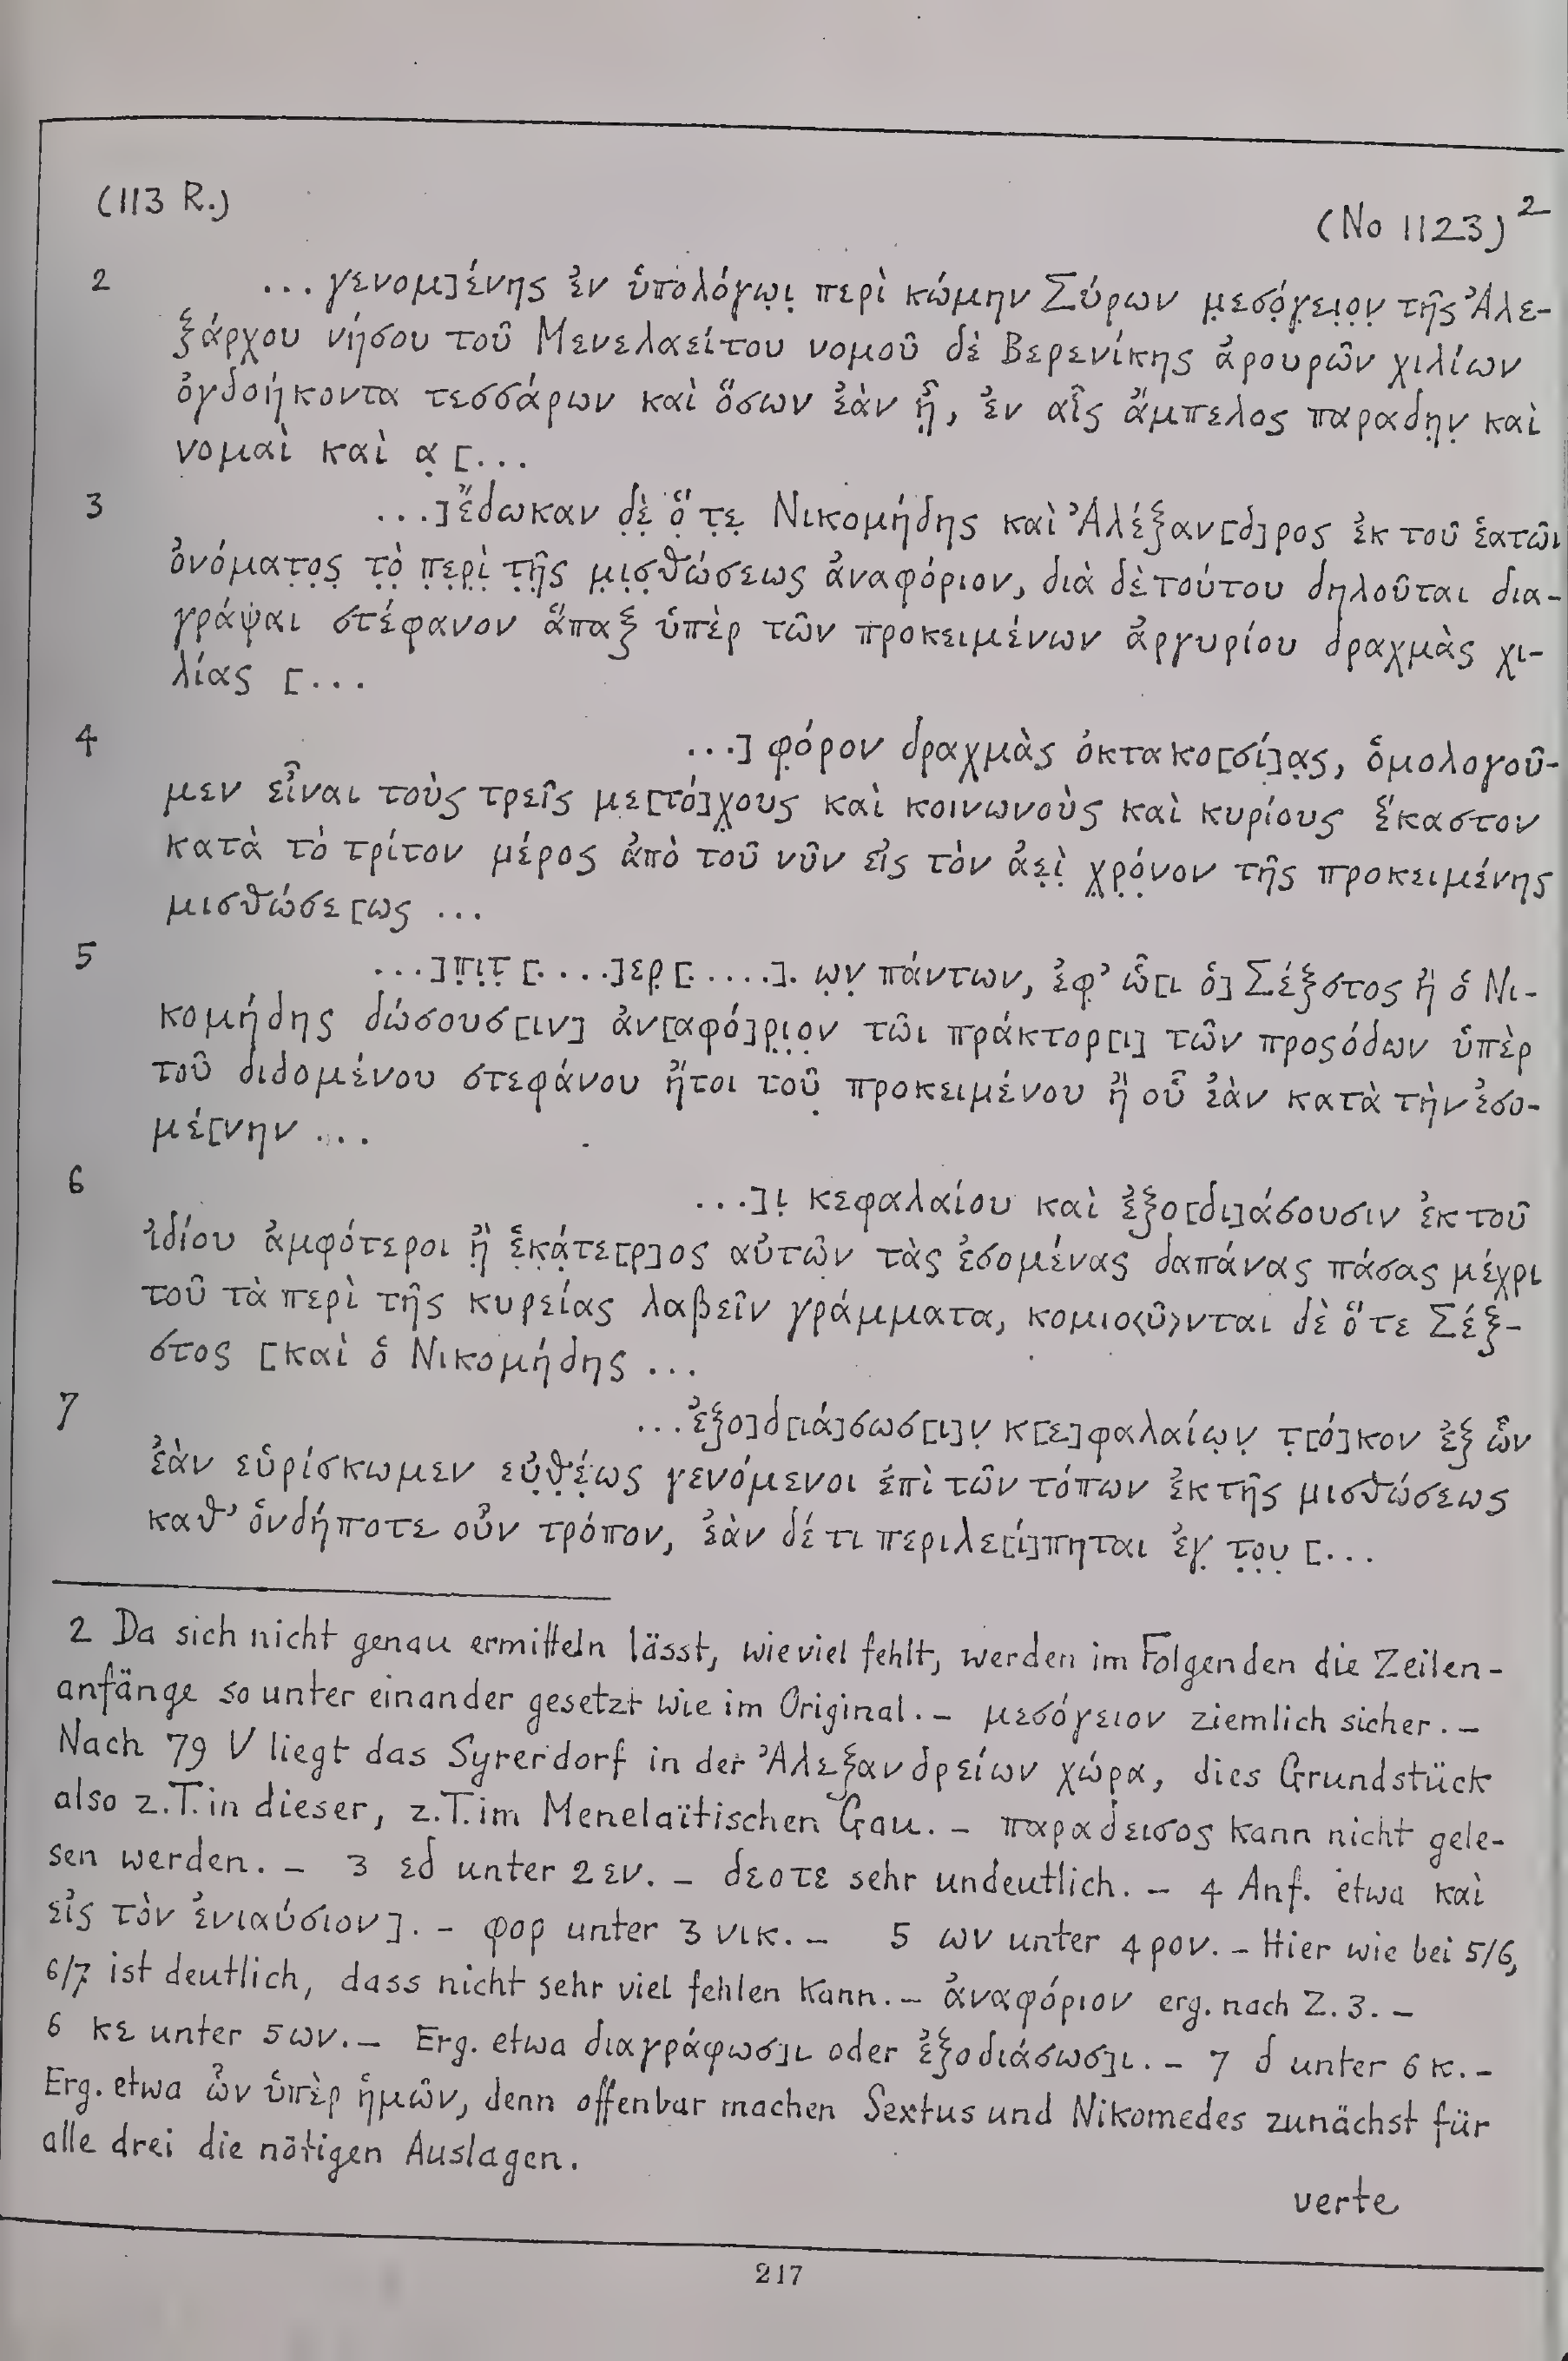 (113 R.)
(No 1123)²
2 ...γενομ]ένης ἐν ὑπολόγω̣ι̣ περὶ κώμην Σύρων μ̣εσό̣γ̣ει̣ο̣ν̣ τῆς Ἀλε-
ξάρχου νήσου τοῦ Μενελαείτου νομοῦ δὲ Βερενίκης ἀρουρῶν χιλίων
ὀγδοήκοντα τεσσάρων καὶ ὅσων ἐὰν ἦ̣ι̣, ἐν αἷς ἄμπελος παραδη̣ν̣ καὶ
νομαὶ καὶ α̣ [...
3 ...]ἔδωκαν δ̣ὲ̣ ὅ̣ τ̣ε̣ Νικομήδης καὶ Ἀλέξαν[δ]ρος ἐκ τοῦ ἑατῶν
ὀνόματο̣ς̣ τ̣ὸ̣ π̣ε̣ρ̣ὶ̣ τ̣ῆ̣ς μ̣ι̣σ̣θ̣ώσεως ἀναφόριον, διὰ δὲ τούτου δηλοῦται δια-
γράψαι στέφανον ἅπαξ ὑπὲρ τῶν προκειμένων ἀργυρίου δραχμὰς χι-
λίας [...
4 ...] φ̣όρον δραχμὰς ὀκτακο[σί]α̣ς, ὁμολογοῦ-
μεν εἶναι τοὺς τρεῖς με[τό]χ̣ους καὶ κοινωνοὺς καὶ κυρίους ἕκαστον
κατὰ τὸ τρίτον μέρος ἀπὸ τοῦ νῦν εἰς τὸν ἀε̣ὶ̣ χ̣ρ̣ό̣νον τῆς προκειμένης
μισθώσε[ως ...
5 ...]π̣ι̣τ̣ [....]ερ̣ [.....]. ω̣ν̣ πάντων, ἐφ’ ὧ[ι ὁ] Σέξστος ἢ ὁ Νι-
κομήδης δώσουσ[ιν] ἀν[αφό]ρ̣ι̣ο̣ν τῶι πράκτορ[ι] τῶν προςόδων ὑπὲρ
τοῦ διδομένου στεφάνου ἤτοι τοῦ̣ προκειμένου ἢ οὗ ἐὰν κατὰ τὴν ἐσο-
μέ[νην ...
6 ...]ι̣ κεφαλαίου καὶ ἐξο[δι]άσουσιν ἐκ τοῦ
ἰδίου ἀμφότεροι ἢ̣ ἑ̣κ̣ά̣τε[ρ]ος αὐτῶν̣ τὰς ἐσομένας δαπάνας πάσας μέχρι
τοῦ τὰ περὶ τῆς κυρείας λαβεῖν γράμματα, κομιο<ῦ>νται δὲ ὅ τε Σέξ-
στος [καὶ ὁ Νικομήδης ...
7 ...ἐξο]δ[ιά]σωσ[ι]ν̣ κ[ε]φαλαίω̣ν̣ τ̣[ό]κον ἐξ ὧν
ἐὰν εὑρίσκωμεν εὐ̣θ̣έ̣ως γενόμενοι ἐπὶ τῶν τόπων ἐκ τῆς μισθώσεως
καθ’ ὁνδήποτε οὖν τρόπον, ἐὰν δέ τι περιλε[ί]πηται ἐγ̣ τ̣ο̣υ̣ [...
2 Da sich nicht genau ermitteln lässt, wieviel fehlt, werden im Folgenden die Zeilen-
anfänge so unter einander gesetzt wie im Original. – μεσόγειον ziemlich sicher. –
Nach 79 V liegt das Syrerdorf in der Ἀλεξανδρείων χώρα, dies Grundstück
also z.T. in dieser, z.T. im Menelaïtischen Gau. – παραδεισος kann nicht gele-
sen werden. – 3 εδ unter 2 εν. – δεοτε sehr undeutlich. – 4 Anf. etwa καὶ
εἰς τὸν ἐνιαύσιον]. – φορ unter 3 νικ. – 5 ων unter 4 ρον. – Hier wie bei 5/6,
6/7 ist deutlich, dass nicht sehr viel fehlen kann. – ἀναφόριον erg. nach Z. 3. –
6 κε unter 5 ων. – Erg. etwa διαγράφωσ]ι oder ἐξοδιάσωσ]ι. – 7 δ unter 6 κ. –
Erg. etwa ὧν ὑπὲρ ἡμῶν, denn offenbar machen Sextus und Nikomedes zunächst für
alle drei die nötigen Auslagen.
verte
217